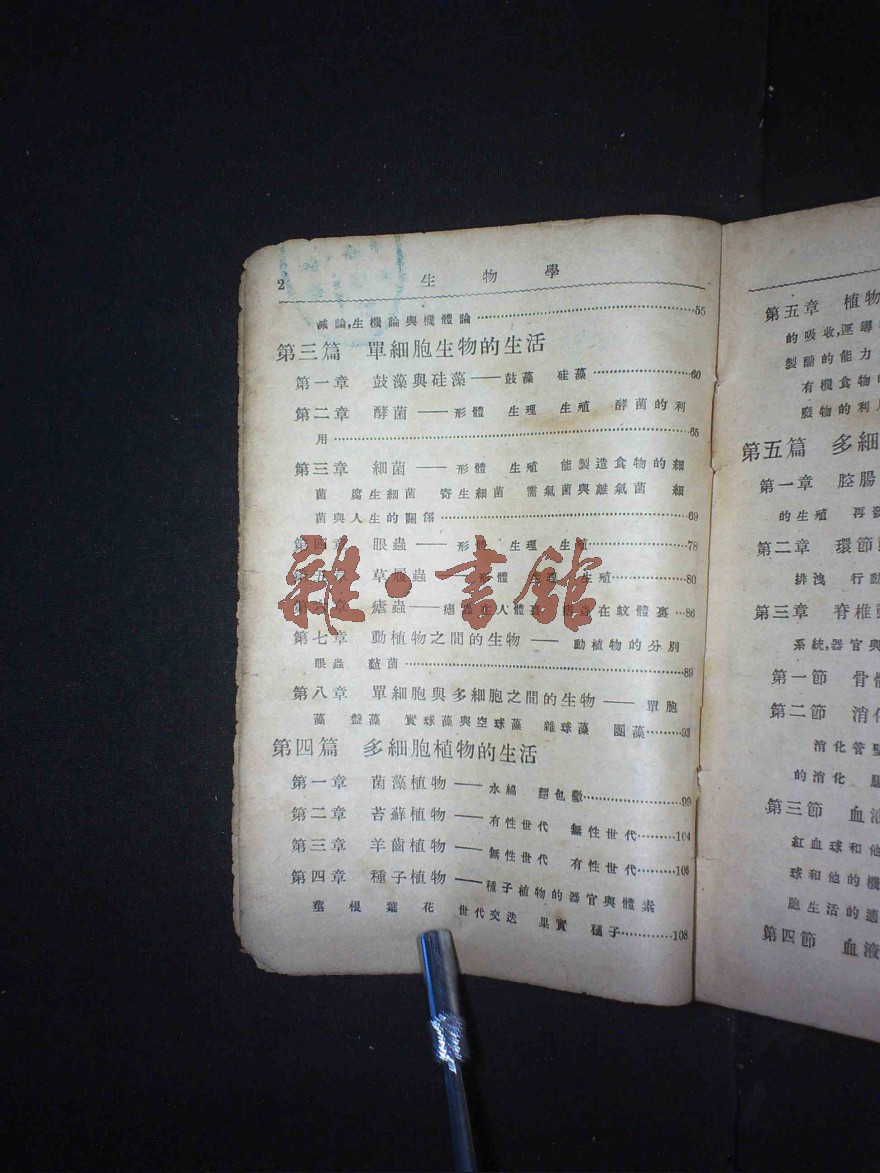 2 生物學
誠論,生機論與機體論 55
第三篇 單細胞生物的生活
第一章 鼓藻與硅藻——鼓藻 硅藻 60
第二章 酵菌——形體 生理 生殖 酵菌的利
用 65
第三章 細菌——形體 生殖 能製造食物的細
菌 腐生細菌 寄生細菌 需氣菌與離氣菌 細
菌與人生的關係 69
第四章 眼蟲——形體 生理 生殖 78
第五章 草履蟲——形體 生理 生殖 80
第六章 瘧蟲——瘧蟲在人體裏 瘧蟲在蚊體裏 86
第七章 動植物之間的生物——動植物的分別
眼蟲 菌 89
第八章 單細胞與多細胞之間的生物——單胞
藻 盤藻 實球藻與空球藻 雜球藻 團藻 93
第四篇 多細胞植物的生活
第一章 菌藻植物——水綿 麵包黴 99
第二章 苔蘇植物——有性世代 無性世代 104
第三章 羊齒植物——無性世代 有性世代 106
第四章 種子植物——種子植物的器官與體素
莖 根 葉 花 世代交迭 果實 種子 108
雜·書館
第五章 植物
的吸收,運導
製醣的能力
有機食物
廢物的利
第五篇 多細
第一章 腔腸
的生殖 再
第二章 環節
排洩 行動
第三章 脊椎
系統,器官與
第一節 骨
第二節 消化
消化管
的消化
第三節 血液
紅血球和他
球和他的機
胞生活的適
第四節 血液